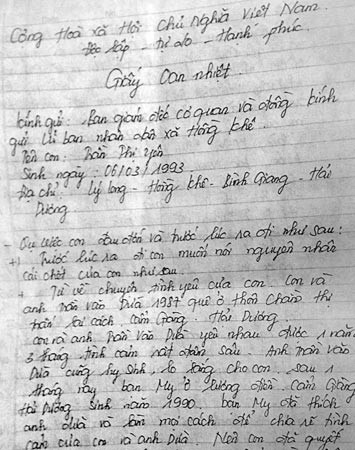 Cộng Hoà xã Hội Chủ Nghĩa Việt Nam.
Độc lập - tự do - Hạnh phúc
Giấy Oan nhiệt.
Kính gửi: ban giám đốc cơ quan và đồng kính
gửi Uỷ ban nhân dân xã Hồng khê.
Tên con: Trần Thị Yên
Sinh ngày: 06/03/1993
Địa chỉ Lý long - Hồng khê - Bình Giang - Hải
Dương
- Ou ước con đau đớn và trước lúc ra đi như sau:
+) Trước lúc ra đi con muốn nói nguyên nhân
cái chết của con như sau.
+ Từ về chuyện tình yêu của con. Con và
anh Trần văn Duẩ 1987 quê ở thôn Cham thị
trấn lai cách Cẩm Giàng. Hải Dương.
Con và anh Trần văn Duẩ yêu nhau được 1 năm
3 tháng tình cảm rất đậm sâu. Anh trần văn
Duẩ cũng hy sinh lo lắng cho con. sau 1
tháng nay bạn My ở Lương điền. Cẩm Giàng
Hải Dương sinh năm 1990. bạn My đã thích
anh duẩ và làm mọi cách để chia rẽ tình
cảm của con và anh Duẩ. Nên con đã quyết